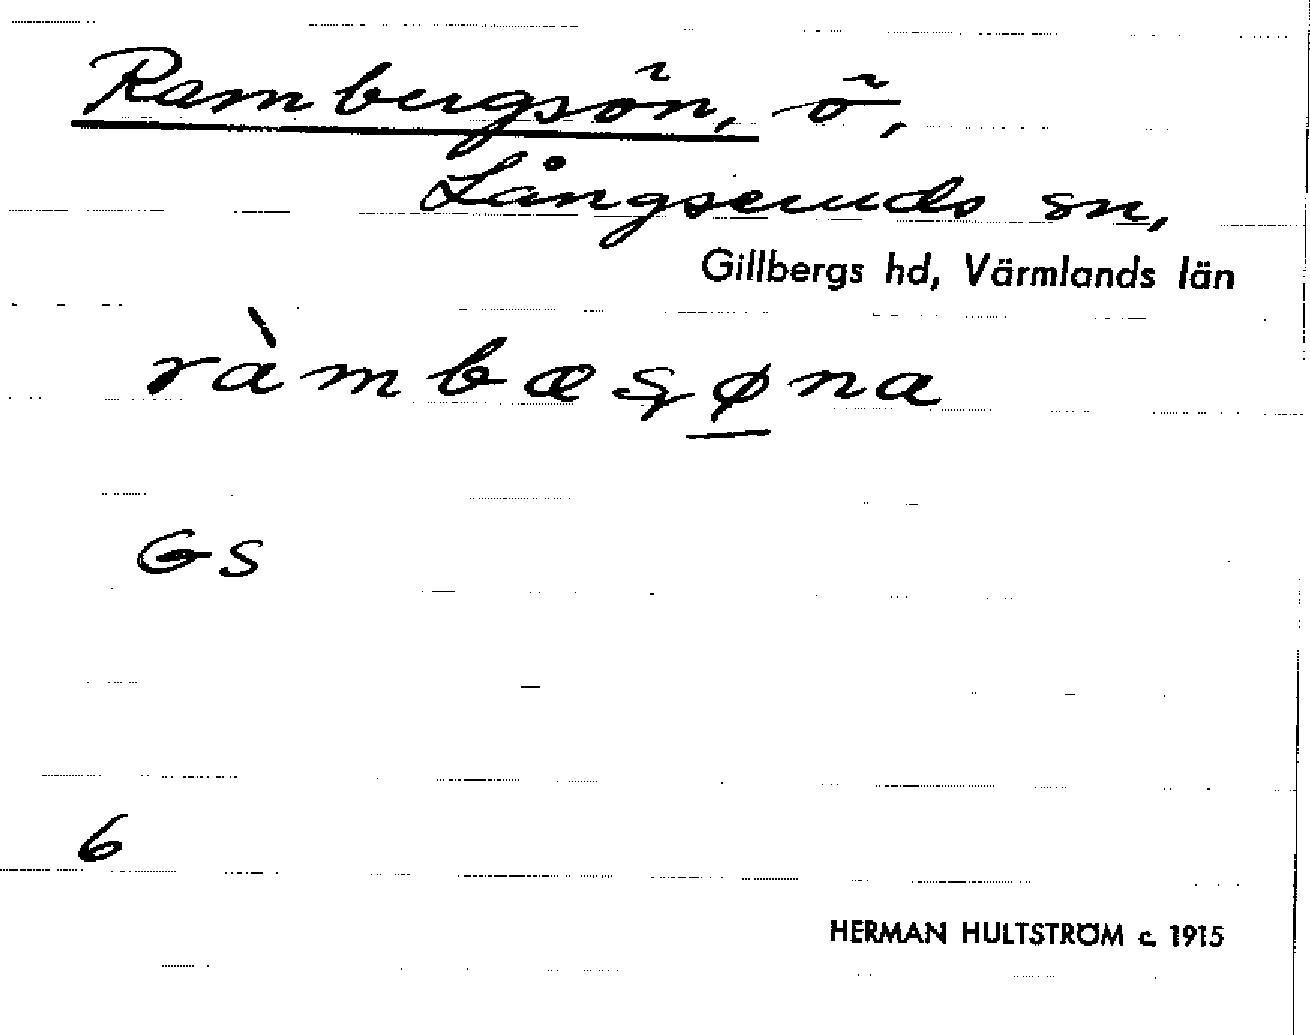 Rambergsön, ö,
Långseruds sn,
Gillbergs hd, Värmlands län
ràmbæʂø̲na
GS
6
HERMAN HULTSTRÖM c. 1915